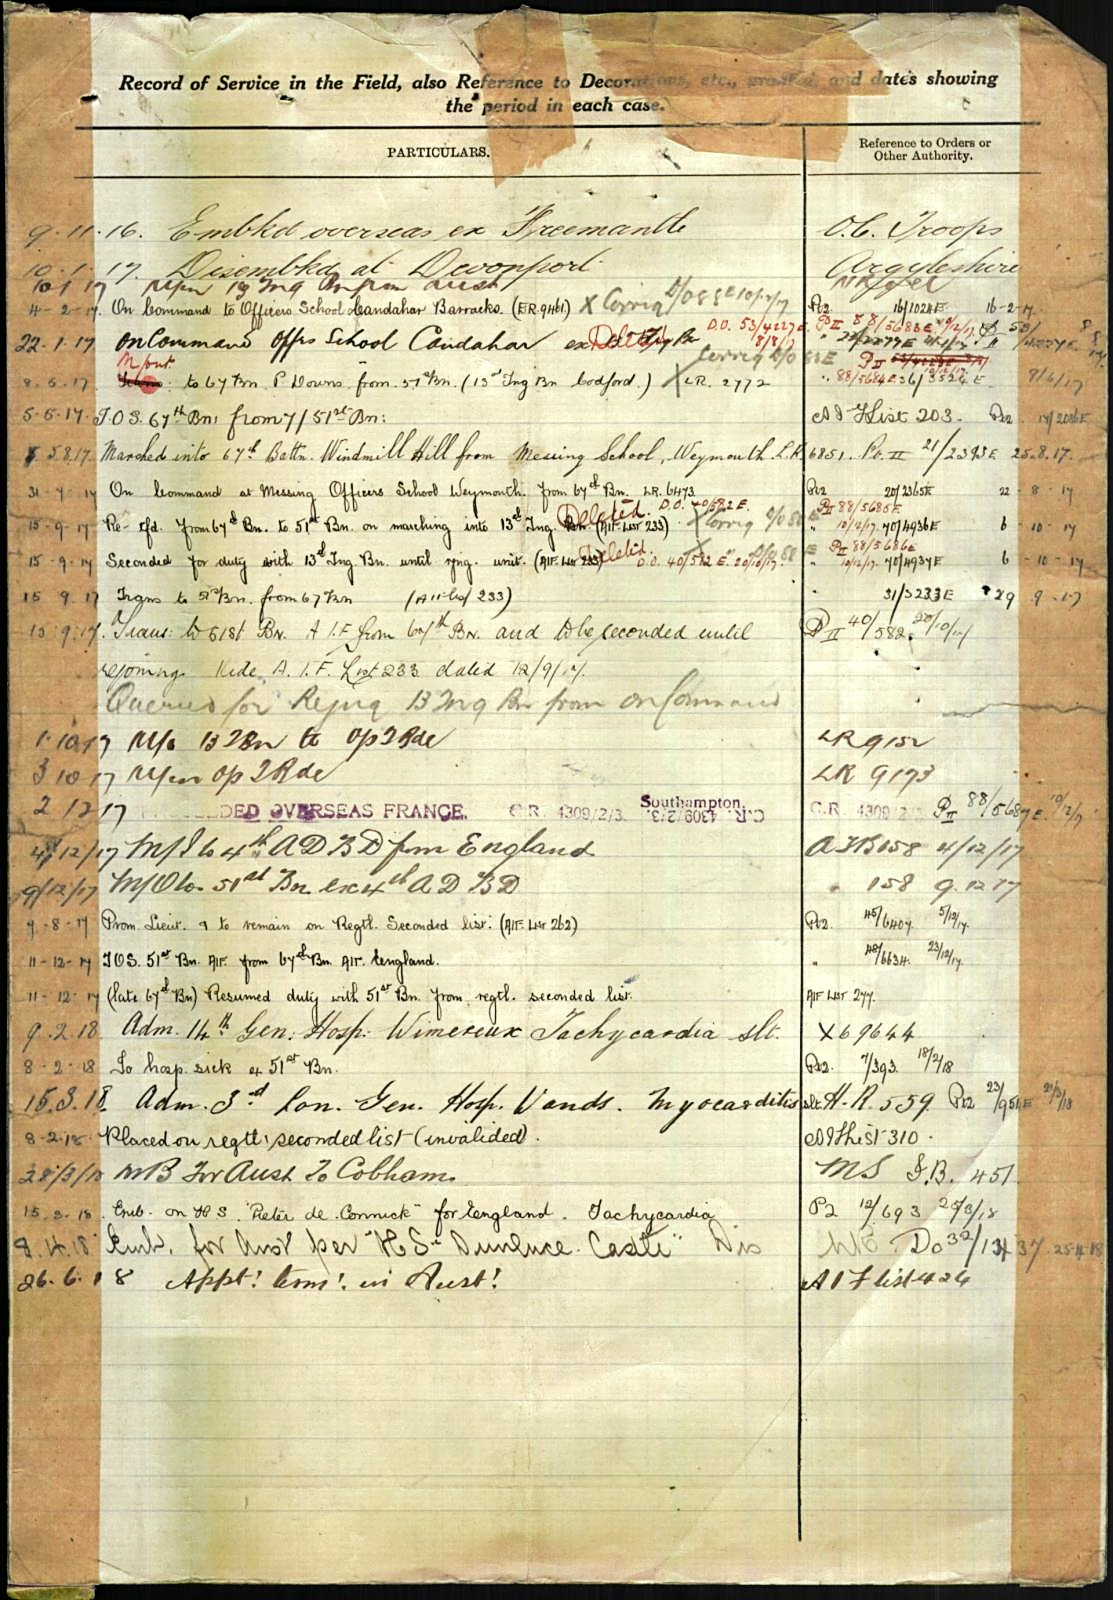 Record of Service in the Field, also Reference to Decorations, etc., and dates showing
the period in each case.
PARTICULARS.
Reference to Orders or
Other Authority.
9.11.16. Embkd overseas ex Freemantle O.C. Troops
10.1.17. Disembkd at Devonport Argyleshire
10 1 17 M/in 13 Tng Bn from Aust
4-2-17 On Command to Officers School Candahar Barracks. (ER.9461) X Corrig D/O 88E 10/12/17 Pt2 16/1024E 16-2-17
22.1.17 On Command Offrs School Candahar ex Deleted D.O. 53/4227E 8/8/17 PII 88/5683E
M/out Corrig D/O 88E
8.5.17 Trans: to 67 Bn. P Downs. from 51st Bn. (13th Tng Bn Codford.) X LR. 2772 88/5684E 36/3324E 9/6/17
5-5-17. T.O.S. 67th Bn: from 7/51st Bn: AIF List 203. Pt2 17/2036E
5.8.17. Marched into 67th Battn. Windmill Hill from Messing School, Weymouth. L.R. 6851. Po. II 21/2393E 25.8.17.
31-7-17 On Command at Messing Officers School Weymouth. from 67th Bn. LR. 6473 Pt2 20/2365E 22-8-17
Deleted. D.O. 40/582E. PII 88/5685E
15-9-17 Re-tfd. from 67th Bn. to 51st Bn. on marching into 13th Tng. Bn. (AIF LIST 233) X Corrig D/O 88E " 10/12/17. 40/4936E 6-10-17
Deleted. D.O. 40/582E. 20/10/17. PII 88/5686E
15-9-17 Seconded for duty with 13th Tng. Bn. until rjng. unit. (AIF List 233) " 10/12/17. 40/4937E 6-10-17
15 9.17 Trans to 51 Bn. from 67 Bn (AIF List 233) " 31/3233E 29 9-17
15.9.17. Trans: to 51st Bn. A.I.F from 67th Bn. and to be seconded until PII 40/582. 20/10/17
rejoining. Vide A.I.F. List 233 dated 12/9/17.
Queried for Rejng 13 Tng Bn from on Command
1.10.17 M/o 13 TBn to Op T Rde LR 9152
3 10 17 M/in Op T Rde LR 9173
2 12 17 PROCEEDED OVERSEAS FRANCE. C.R. 4309/2/3. Southampton. C.R. 4309/2/3. C.R. 4309/2/3 PII 88/5687E. 10/12/17
4/12/17 M/I to 4th A D B D from England AFB 158 4/12/17
9/12/17 M/O to 51st Bn ex 4th A D B D " 158 9.12.17
9-8-17 Prom. Lieut. & to remain on Regtl. Seconded list. (AIF LIST 262) Pt2. 45/6407. 5/12/17.
11-12-17 TOS. 51st Bn. AIF. from 67th Bn. AIF. England. " 48/6634. 23/12/17.
11-12-17 (late 67th Bn) Resumed duty with 51st Bn. from regtl. seconded list. AIF LIST 277.
9.2.18 Adm. 14th Gen: Hosp: Wimereux Tachycardia slt. X69644
8-2-18 To hosp. sick ex 51st Bn. Pt2. 7/393. 18/2/18
15.3.18. Adm. 3rd Lon. Gen. Hosp. Wands. Myocarditis slt. H.R. 559. Pt2 23/951E
8-2-18 Placed on regtl: seconded list (invalided). AIF List 310.
28/3/18 MB For Aust To Cobham. MS F.B. 451
15.3-18. Emb. on H S. "Peter de Connick" for England. Tachycardia P2 12/693 25/3/18
8.4.18 Emb. for Aust per "H.S. Dunluce Castle" Dis DO 32/1437 25.4.18
26.6.18 Appt: term: in Aust: AIF List 426